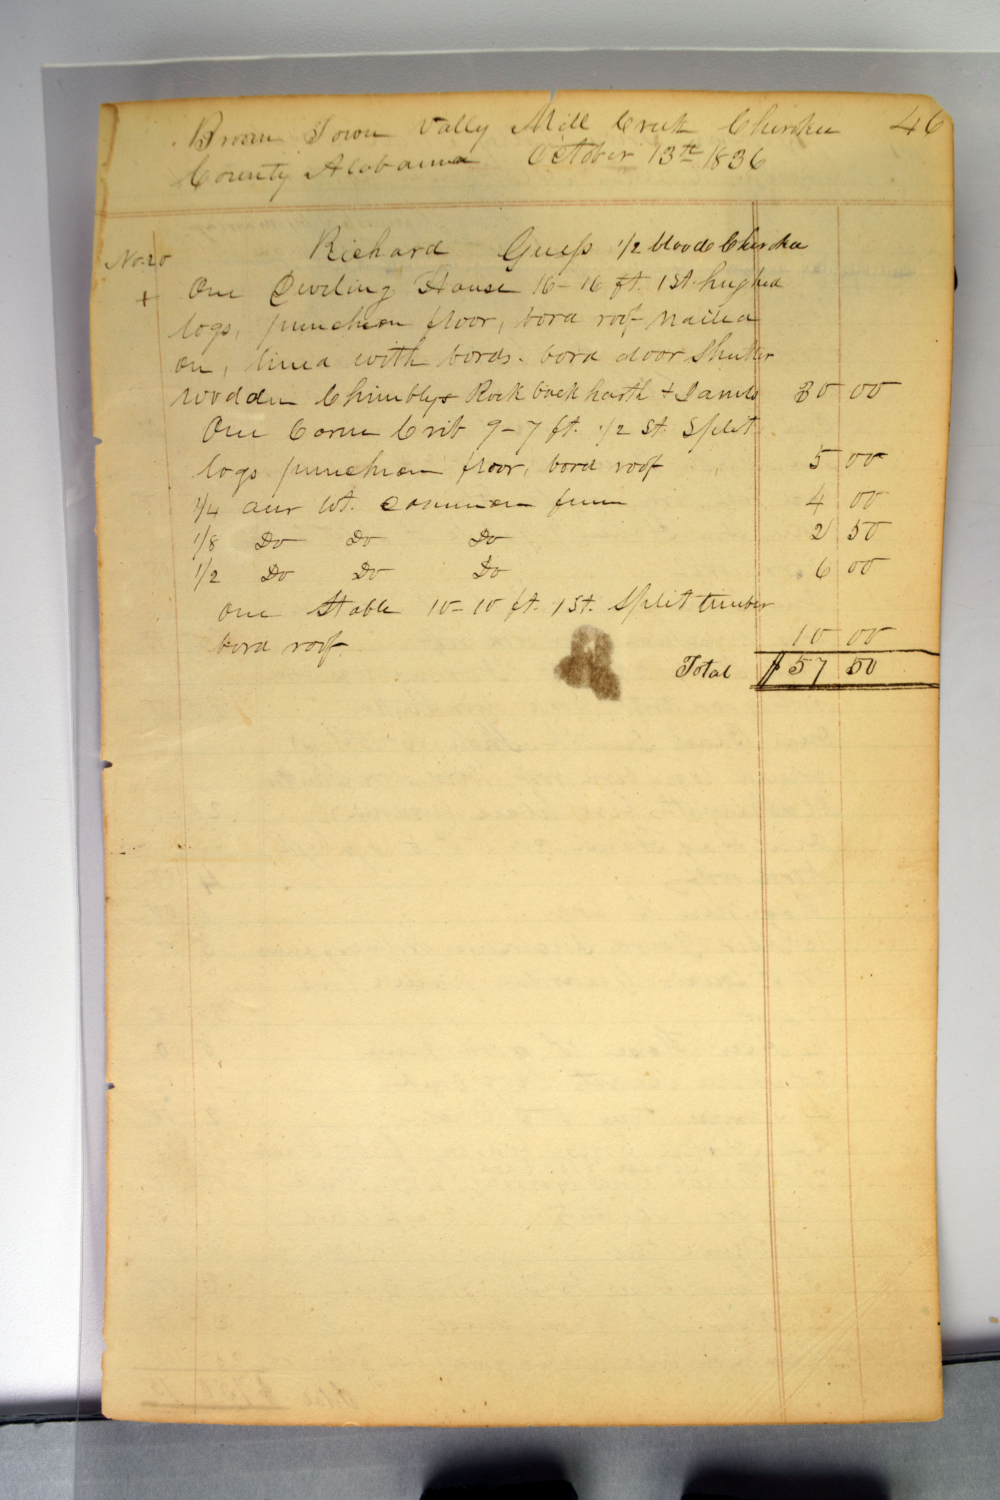 Broom Town Vally Mill Creek Cherokee 46
County Alabama October 13th 1836
No. 20 Richard Guess 1/2 blood Cherokee
+ One Dweling House 16-16 ft. 1 St. hughed
logs, puncheon floor, bord roof nailed
on, lined with bords. bord door Shutter
wooden Chimbly & Rock back harth & Jambs 30 00
One Corn Crib 9-7 ft. 1/2 St. Split
logs puncheon floor, bord roof 5 00
1/4 acre lot. common fence 4 00
1/8 Do Do Do 2 50
1/2 Do Do Do 6 00
One Stable 10-10 ft. 1 St. Split timber
bord roof 10 00
Total $57 50